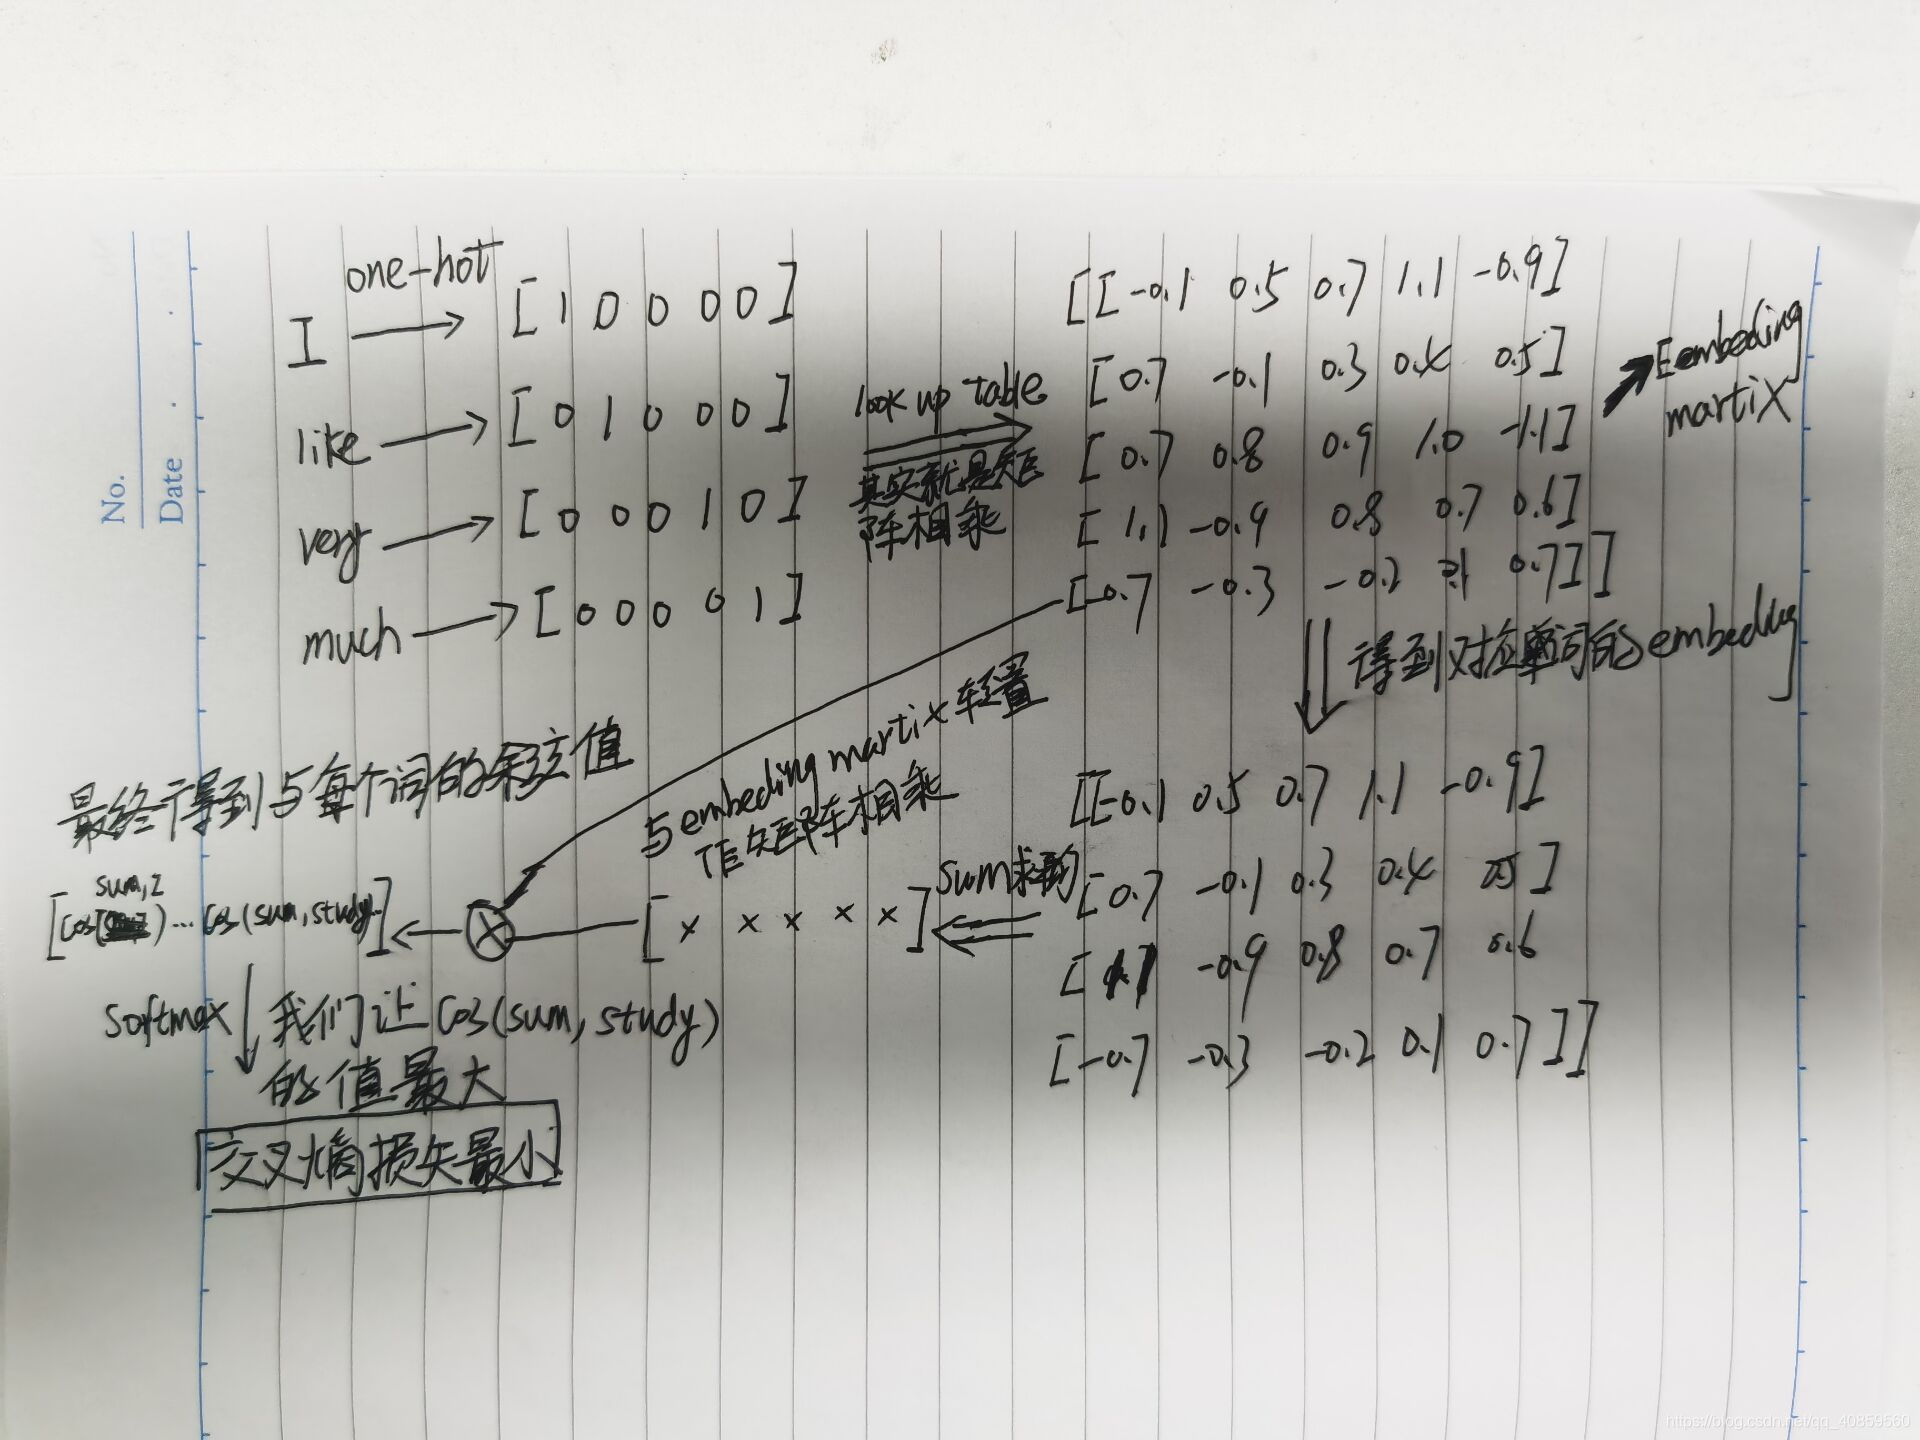 No.
Date
one-hot
I
[ 1 0 0 0 0 ]
like
[ 0 1 0 0 0 ]
very
[ 0 0 0 1 0 ]
much
[ 0 0 0 0 1 ]
look up table
其实就是矩
阵相乘
[[ -0.1 0.5 0.7 1.1 -0.9]
[ 0.7 -0.1 0.3 0.4 0.5]
[ 0.7 0.8 0.9 1.0 -1.1]
[ 1.1 -0.9 0.8 0.7 0.6]
[-0.7 -0.3 -0.2 0.1 0.7]]
Eembeding
martix
得到对应单词的embeding
[[-0.1 0.5 0.7 1.1 -0.9]
[0.7 -0.1 0.3 0.4 0.5]
[1.1 -0.9 0.8 0.7 0.6
[-0.7 -0.3 -0.2 0.1 0.7]]
sum求和
[ x x x x x ]
与embeding martix转置
作矩阵相乘
最终得到与每个词的余弦值
sum, I
[cos( ) ... cos(sum, study)..]
softmax
我们让cos(sum, study)
的值最大
交叉熵损失最小
https://blog.csdn.net/qq_40859560